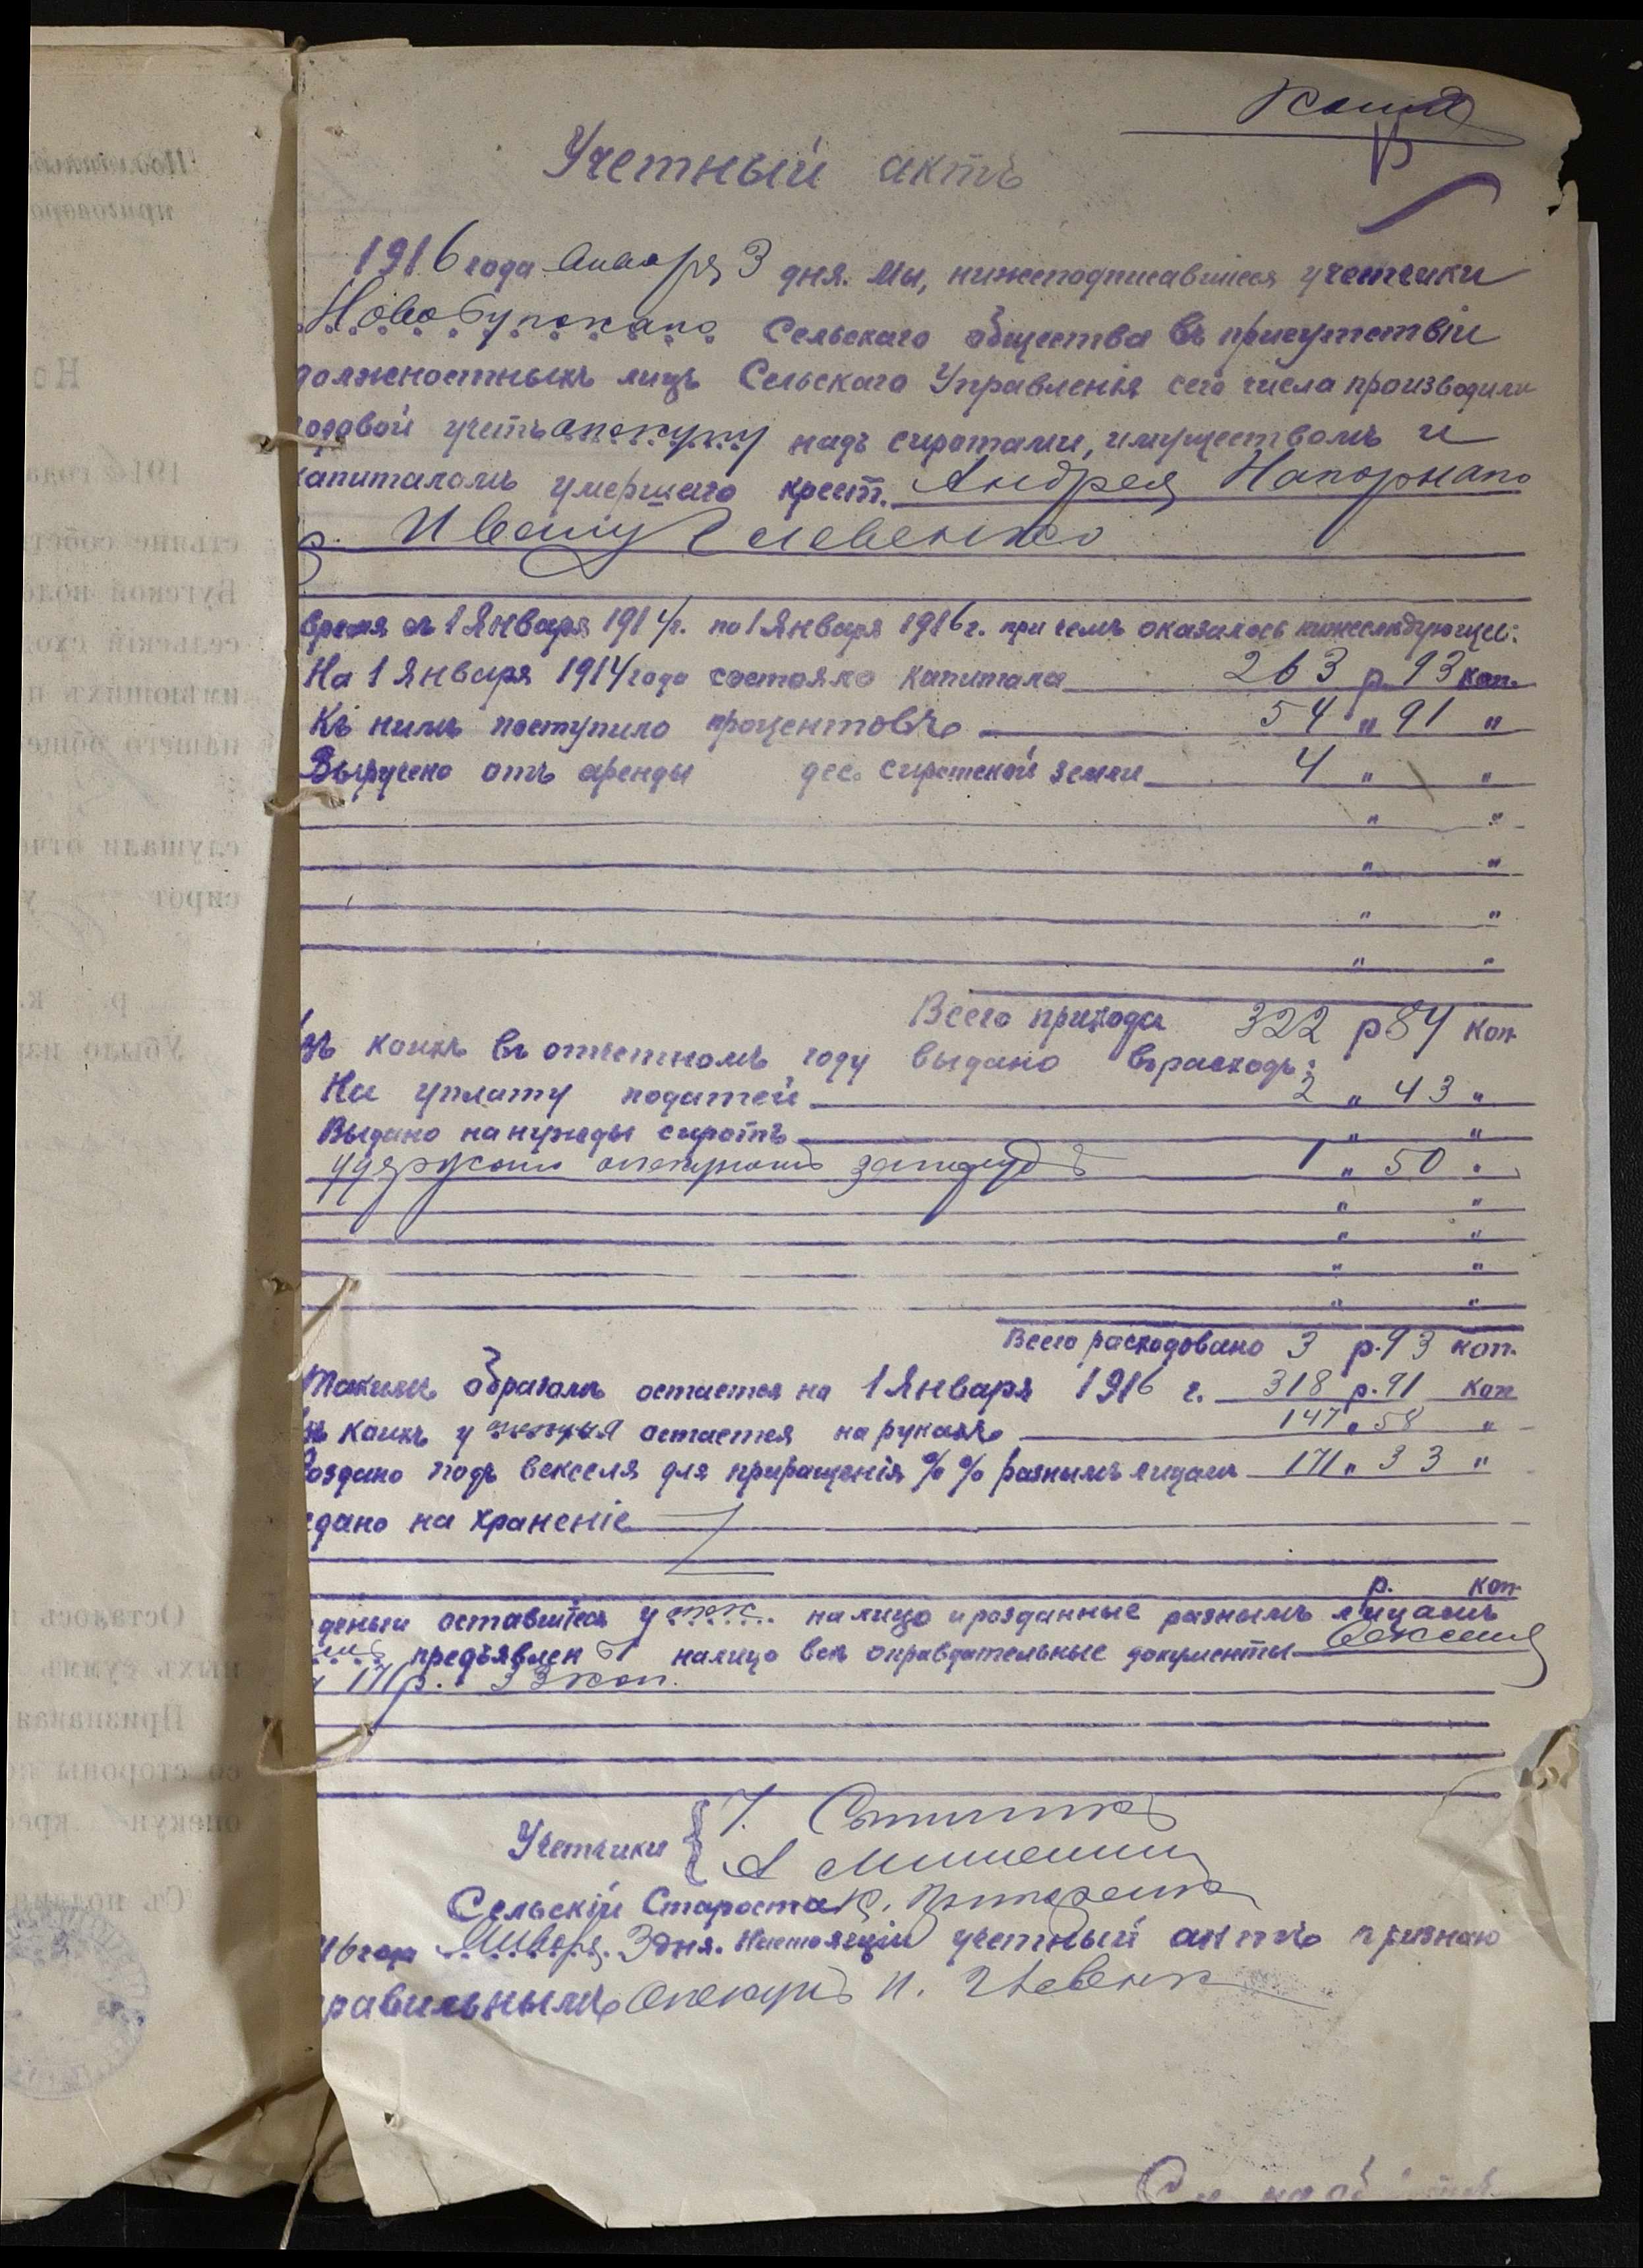 Копія
Учетный актъ
1916 года января 3 дня. Мы, нижеподписавшіеся учетчики
Новобугскаго Сельскаго общества въ присутствіи
должностныхъ лицъ Сельскаго Управленія сего числа производили
годовой учетъ опекуну надъ сиротами, имуществомъ и
капиталомъ умершаго крест. Андрея Напорнаго
Ивану Глевенко
время съ 1 Января 1914 г. по 1 Января 1916 г. при чемъ оказалось нижеслѣдующее:
На 1 Января 1914 года состояло капитала 263 р. 93 коп.
Къ нимъ поступило процентовъ 54 " 91 "
Выручено отъ аренды дес. сиротской земли 4 " "
" "
" "
" "
" "
Всего прихода 322 р 84 коп
зъ коихъ въ отчетномъ году выдано въ расходъ:
На уплату податей 2 " 43 "
Выдано на нужды сиротъ " "
удержано опекуномъ за трудъ 1 " 50 "
" "
" "
" "
" "
Всего расходовано 3 р. 93 коп.
Такимъ образомъ остается на 1 Января 1916 г. 318 р. 91 коп
зъ коихъ у остается на рукахъ 147 " 58 "
Роздано подъ векселя для приращенія % % разнымъ лицамъ 171 " 33 "
сдано на храненіе
р. коп.
деньги оставшіеся у на лицо и розданные разнымъ лицамъ
предъявлены налицо всѣ оправдательные документы векселя
171 р. 33 коп.
Учетчики
А
Сельскій Староста К.
16 года Января 3 дня. Настоящій учетный актъ признаю
равильнымъ Опекунъ И. Глевенко